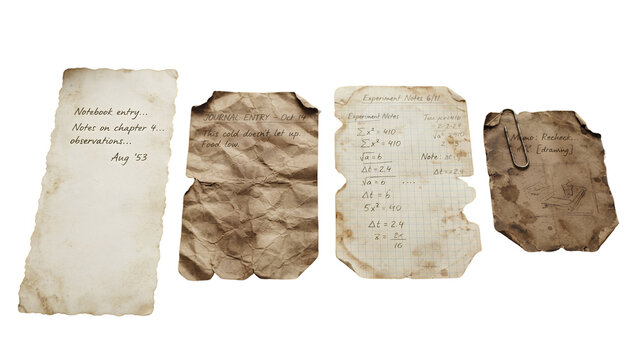 Notebook entry...
Notes on chapter 4...
observations...
Aug '53
JOURNAL ENTRY – Oct 14
This cold doesn't let up.
Food low.
Experiment Notes 6/11
Experiment Notes
∑x² = 410
∑x² = 410
√a = b
Δt = 2.4
√a = b ....
Δt = b
5x² = 40
Δt = 2.4
Note:
Δt = 2.4
Recheck.
[drawing]